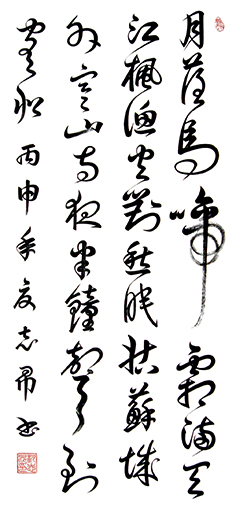 月落烏啼霜滿天
江楓漁火對愁眠姑蘇城
外寒山寺夜半鐘聲到
客船 丙申年夏志書